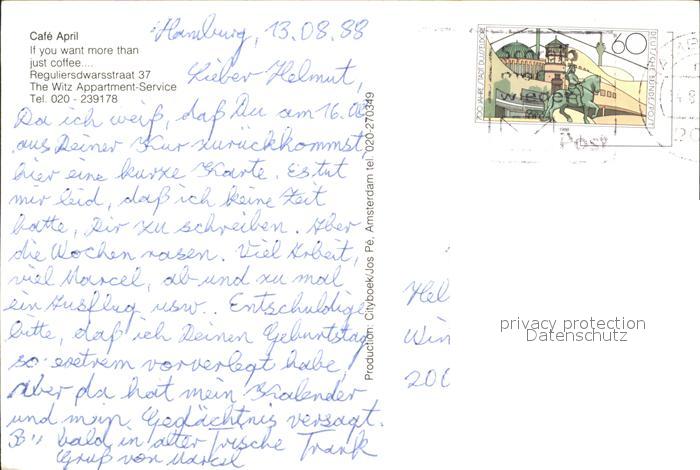 Café April
If you want more than
just coffee....
Reguliersdwarsstraat 37
The Witz Appartment-Service
Tel. 020 - 239178
Hamburg, 13.08.88
Lieber Helmut,
Da ich weiß, daß Du am 16.
aus Deiner Kur zurückkommst,
hier eine kurze Karte. Es tut
mir leid, daß ich keine Zeit
hatte, Dir zu schreiben. Aber
die Wochen rasen. Viel Arbeit,
viel Marcel, ab und zu mal
ein Ausflug usw.. Entschuldige
bitte, daß ich Deinen Geburtstag
so extrem vorverlegt habe
aber da hat mein Kalender
und mein Gedächtnis versagt.
bald in alter Frische Frank
Gruß von Marcel
Production: Cityboek/Jos Pé, Amsterdam tel. 020-270349
60
DEUTSCHE BUNDESPOST
700 JAHRE STADT DÜSSELDORF
1988
wieder
Hel
Win
200
privacy protection
Datenschutz